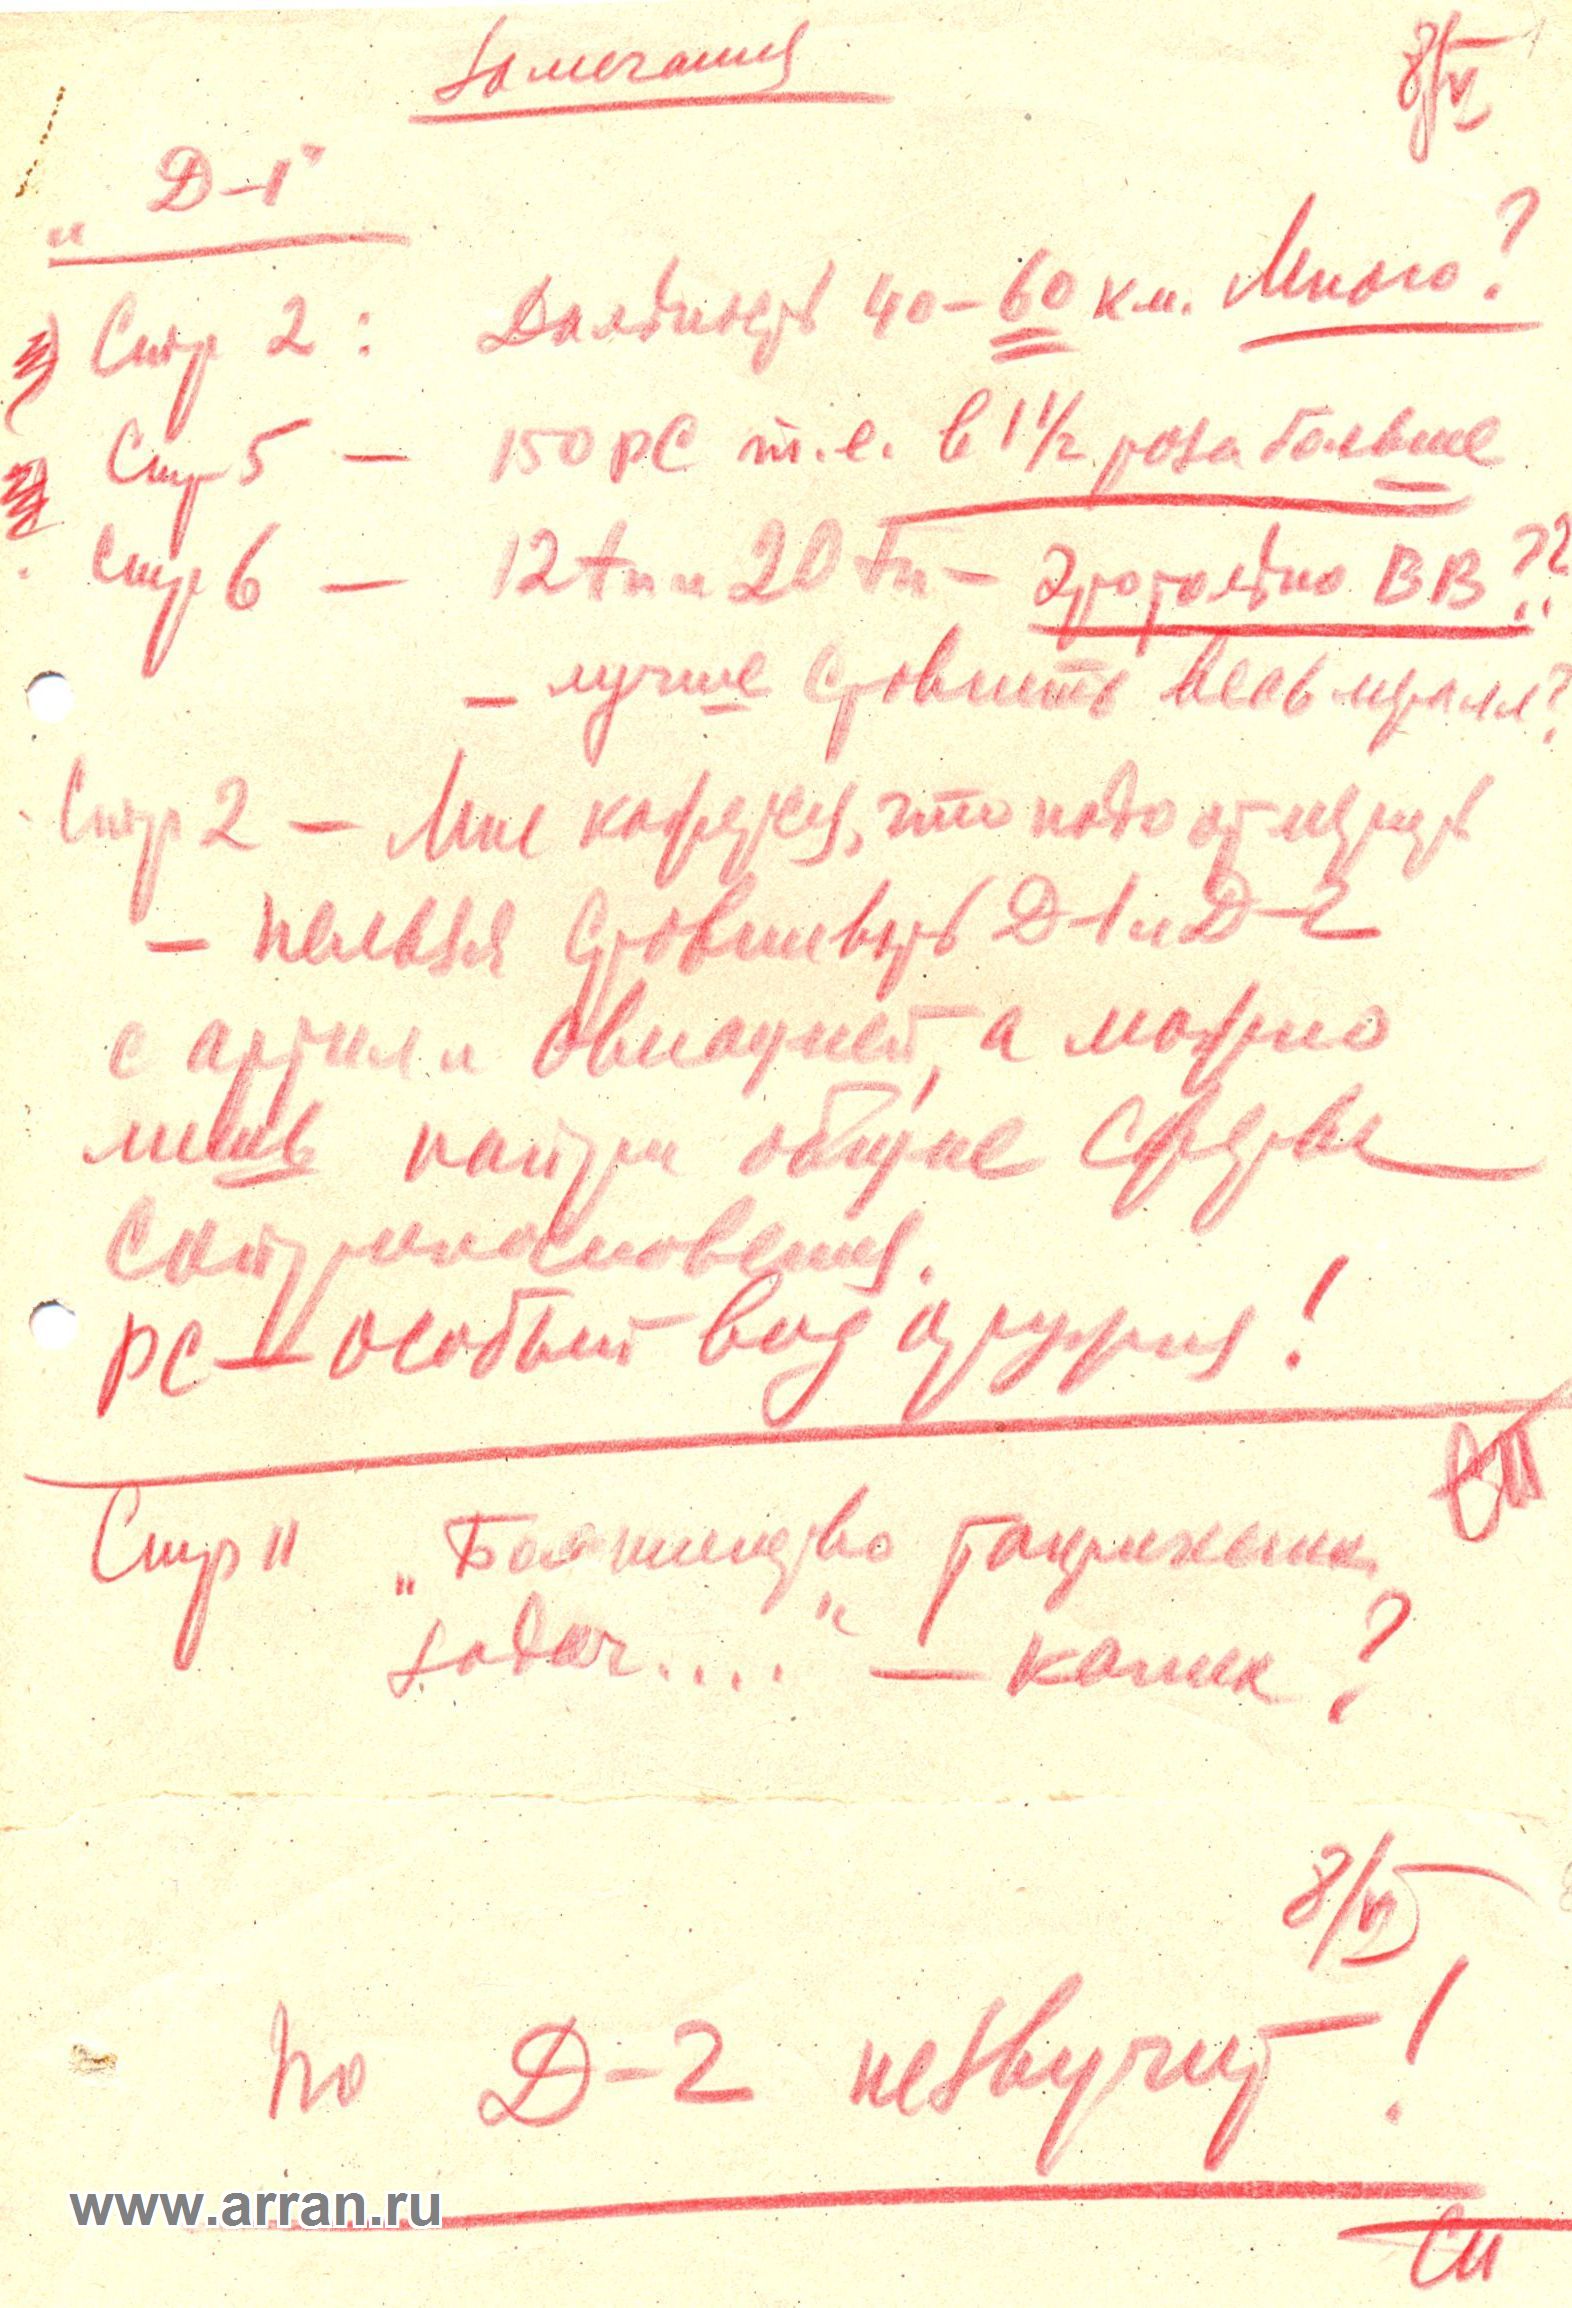 Замечания
8/VI
„Д-1"
Стр 2: Дальность 40-60 км. Много?
Стр 5 - 150 РС т.е. в 1 1/2 раза больше
Стр 6 - 12 тн и 20 тн - это только ВВ??
- лучше сравнить весь
Стр 2 - Мне кажется, что надо отметить
- нельзя сравнивать Д-1 и Д-2
с артил и авиацией, а можно
лишь найти общие
соприкосновения.
РС - особый вид оружия!
Стр 11 „Большинство
задач...." - каких?
8/VI
По Д-2 не звучит!
www.arran.ru